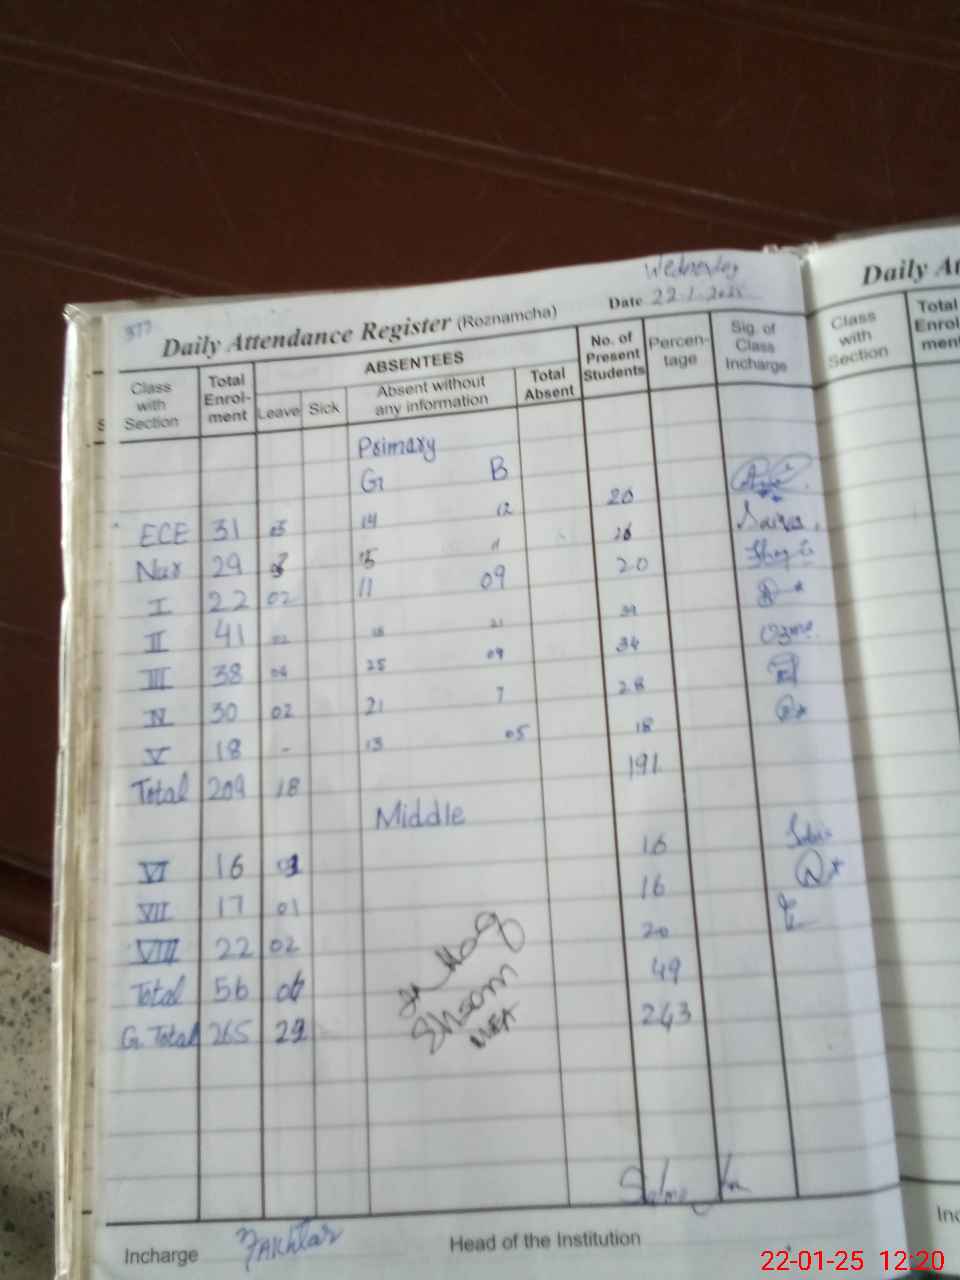 377
Wednesday
Daily Attendance Register (Roznamcha) Date 22-1-2025
Class with Section Total Enrol-ment ABSENTEES No. of Present Students Percen-tage Sig. of Class Incharge
Leave Sick Absent without any information Total Absent
Primary
G B
ECE 31 03 14 12 20
Nur 29 15 11
I 22 02 11 09 20
II 41 02 18 21 39
III 38 04 25 09 34
IV 30 02 21 7 28
V 18 - 13 05 18
Total 209 18 191
Middle
VI 16 16
VII 17 01 16
VIII 22 02 20
Total 56 49
G. Total 265 243
Ehsom
MEA
Incharge Fakhtar Head of the Institution
Daily At
Class with Section Total Enrol-ment
Inc
22-01-25 12:20